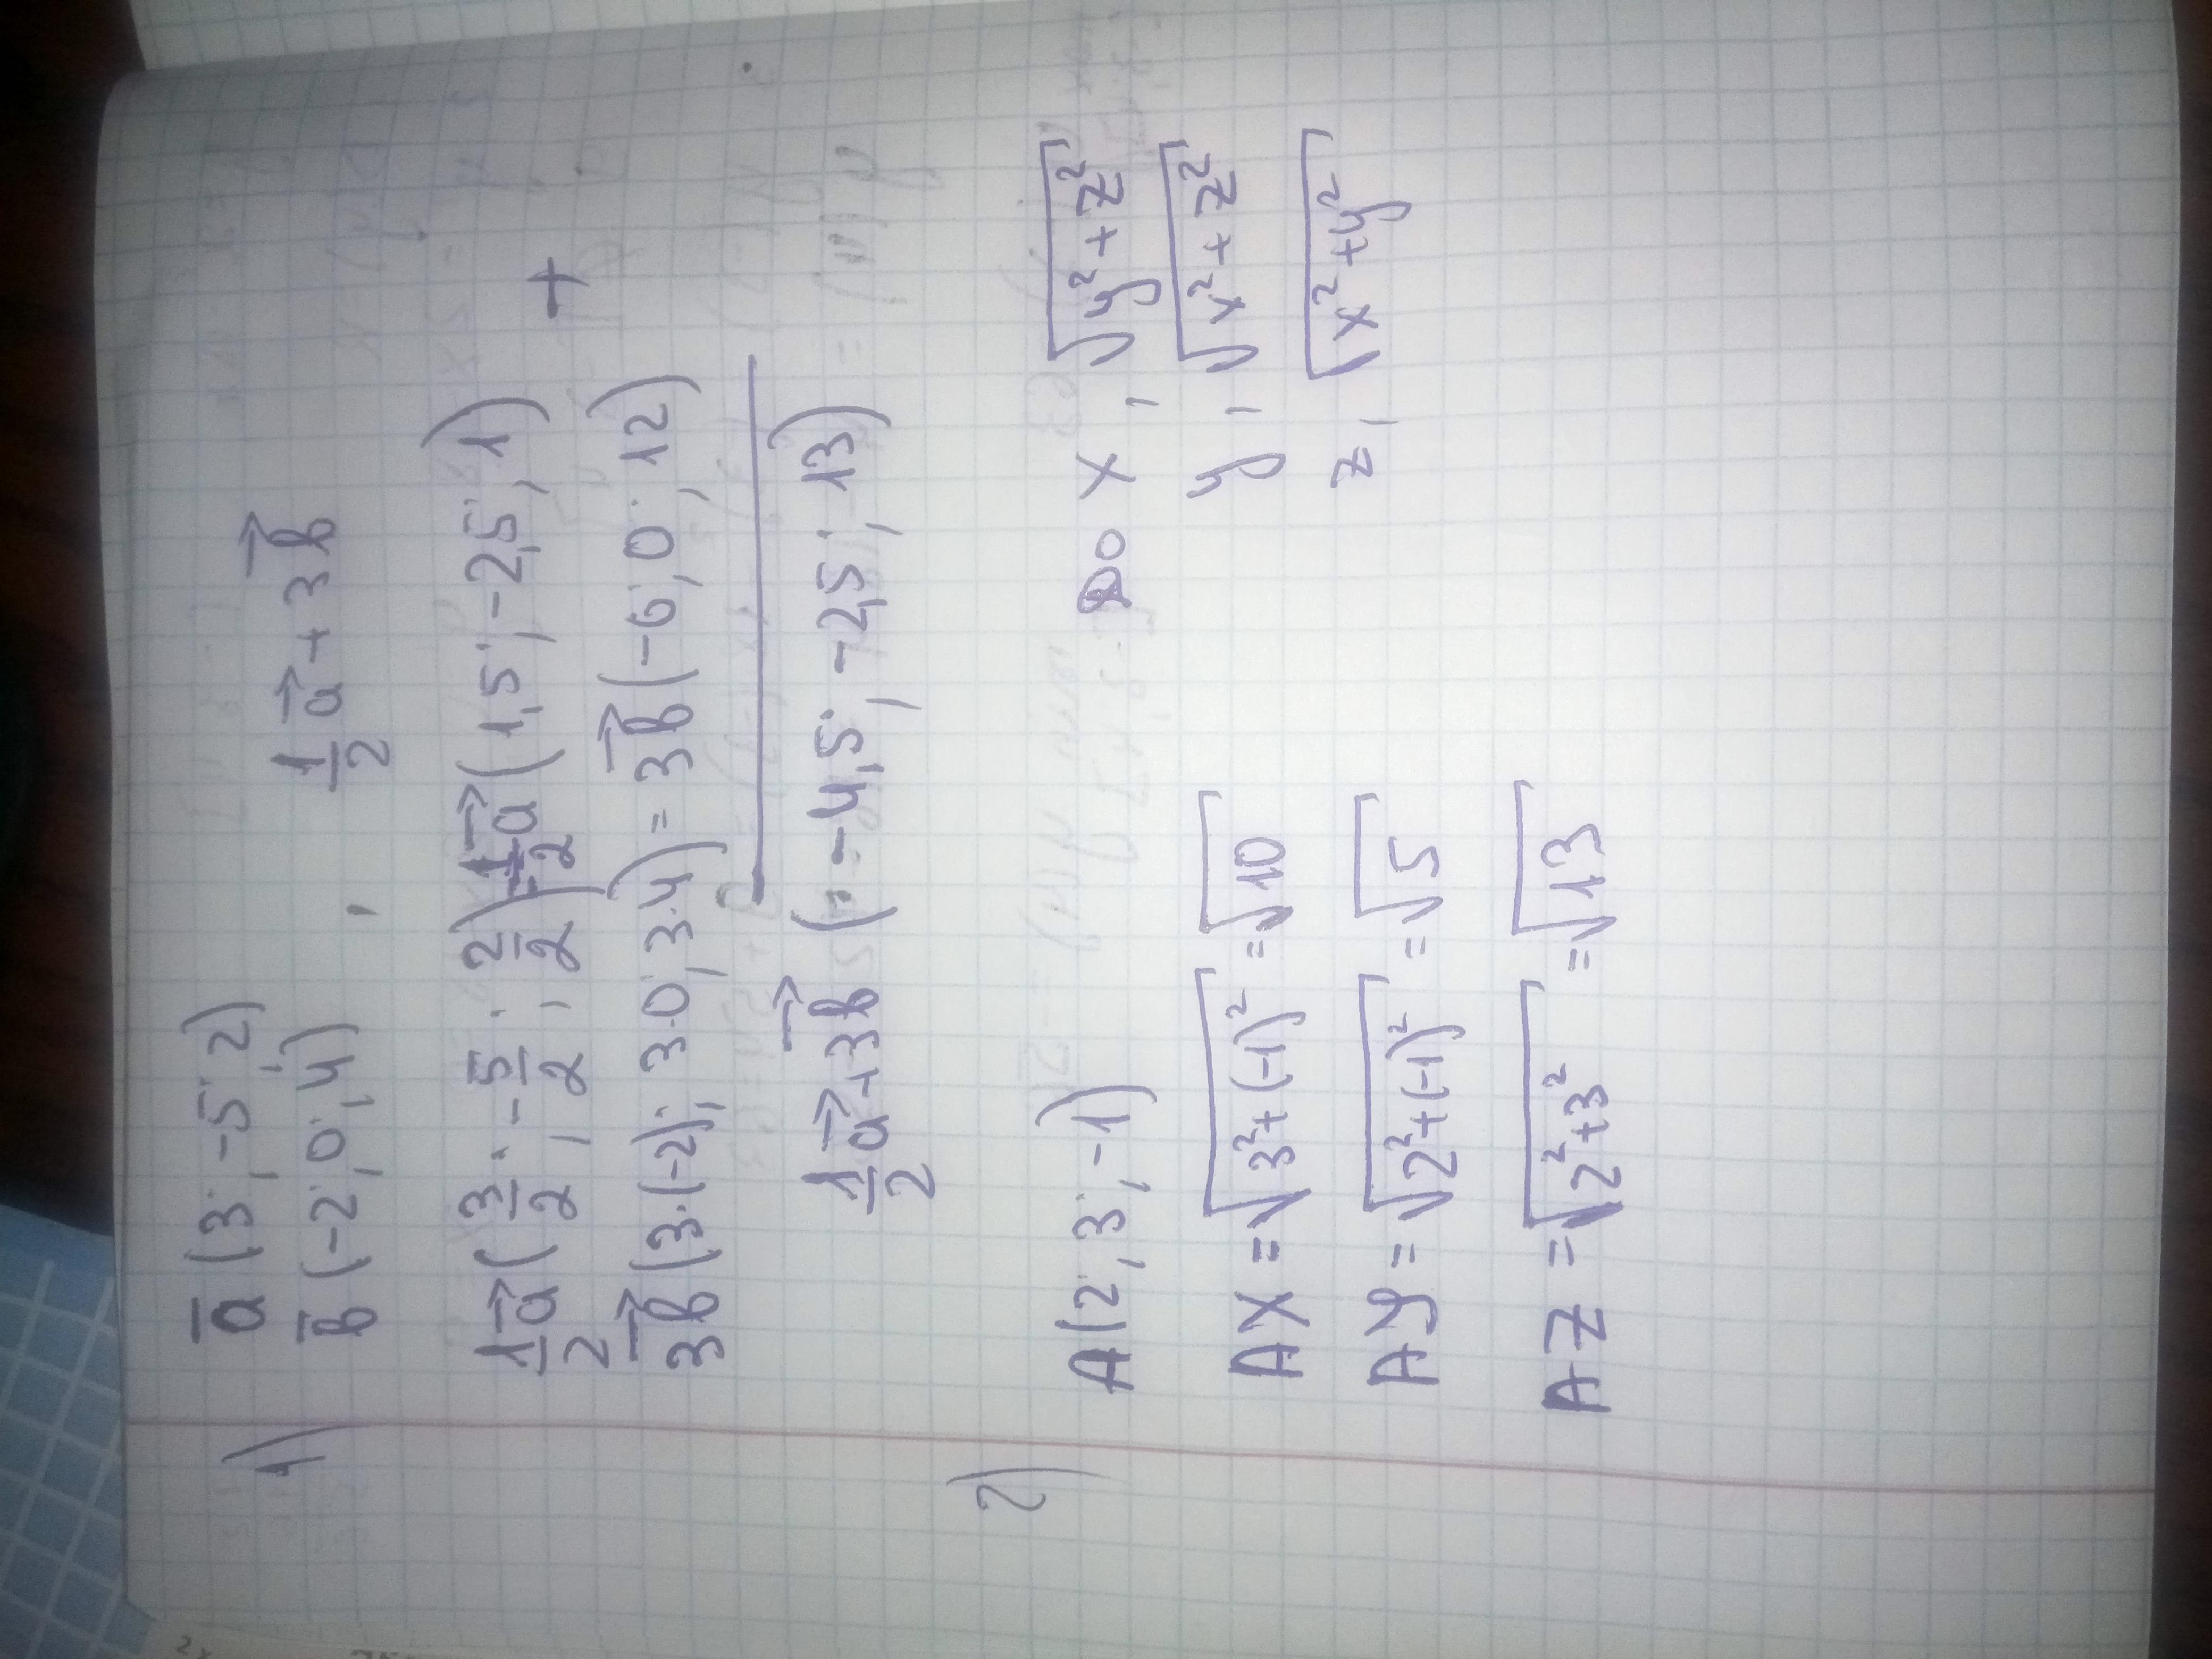 1) a̅ (3; -5; 2)
b̅ (-2; 0; 4) , 1/2 a⃗ + 3b⃗
1/2 a⃗ (3/2; -5/2; 2/2) = 1/2 a⃗ (1,5; -2,5; 1) +
3b⃗ (3·(-2); 3·0; 3·4) = 3b⃗ (-6; 0; 12)
1/2 a⃗ + 3b⃗ (-4,5; -2,5; 13)
2) A(2; 3; -1) До x, √(y²+z²)
AX = √(3²+(-1)²) = √10 y, √(x²+z²)
AY = √(2²+(-1)²) = √5 z, √(x²+y²)
AZ = √(2²+3²) = √13
2x